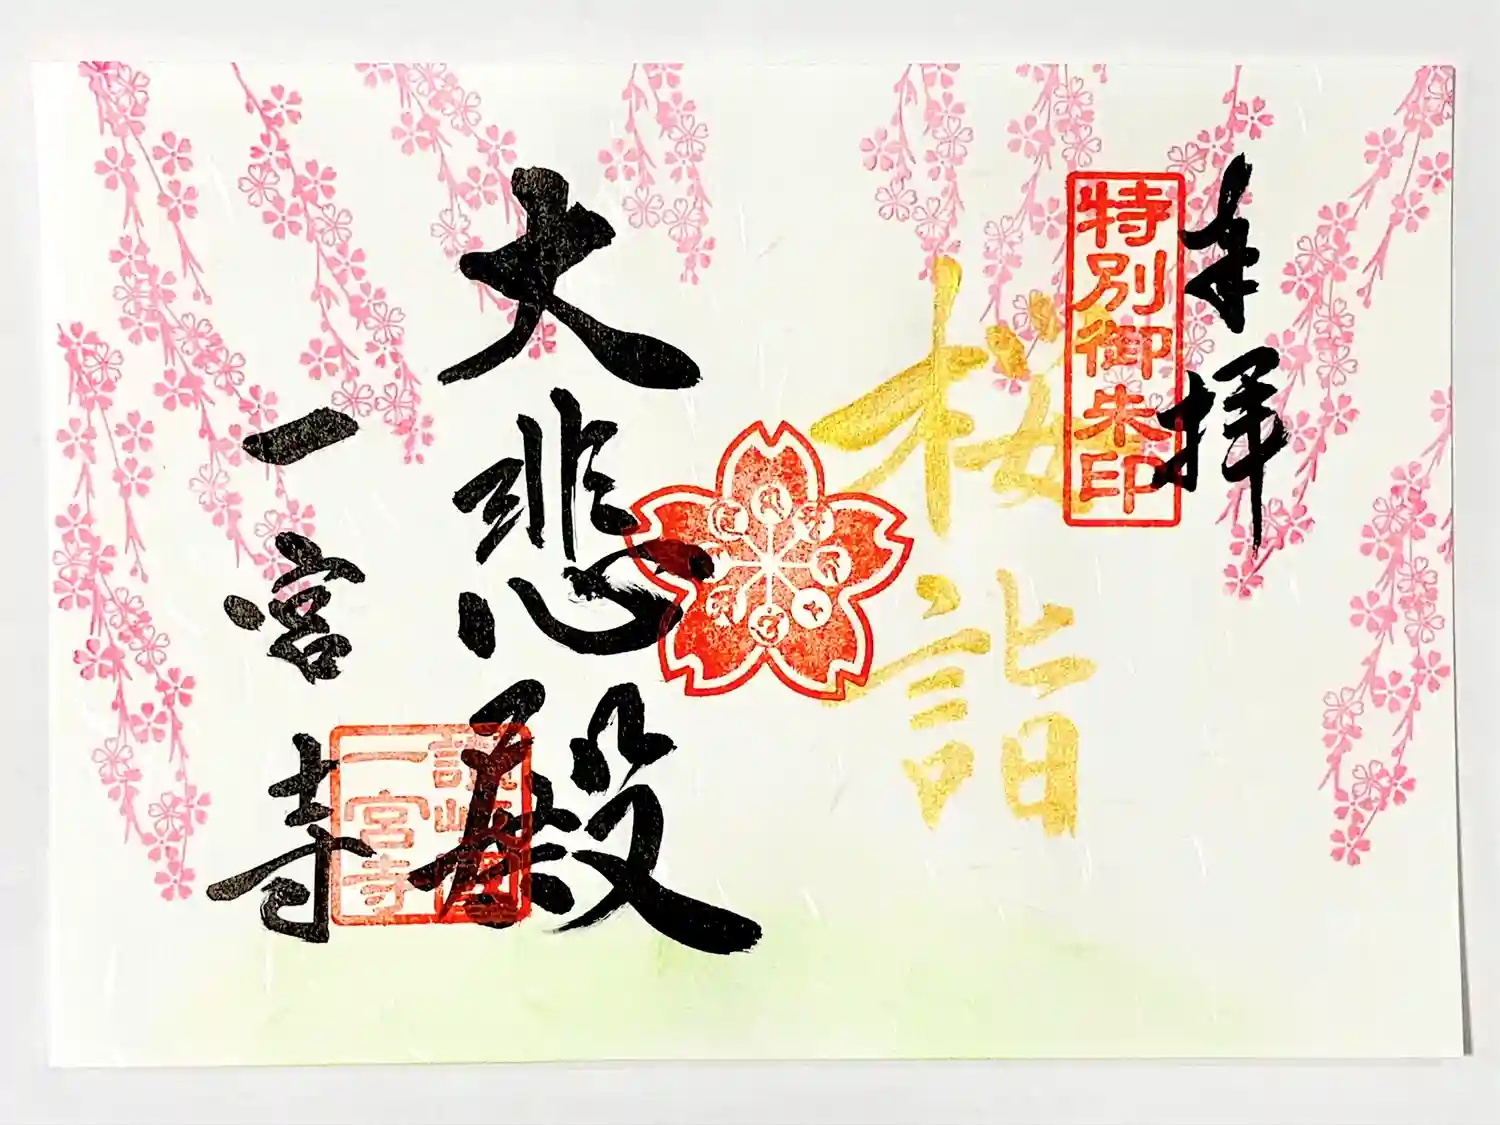 奉拝
特別御朱印
桜詣
大悲殿
讃岐國
一宮寺
一宮寺